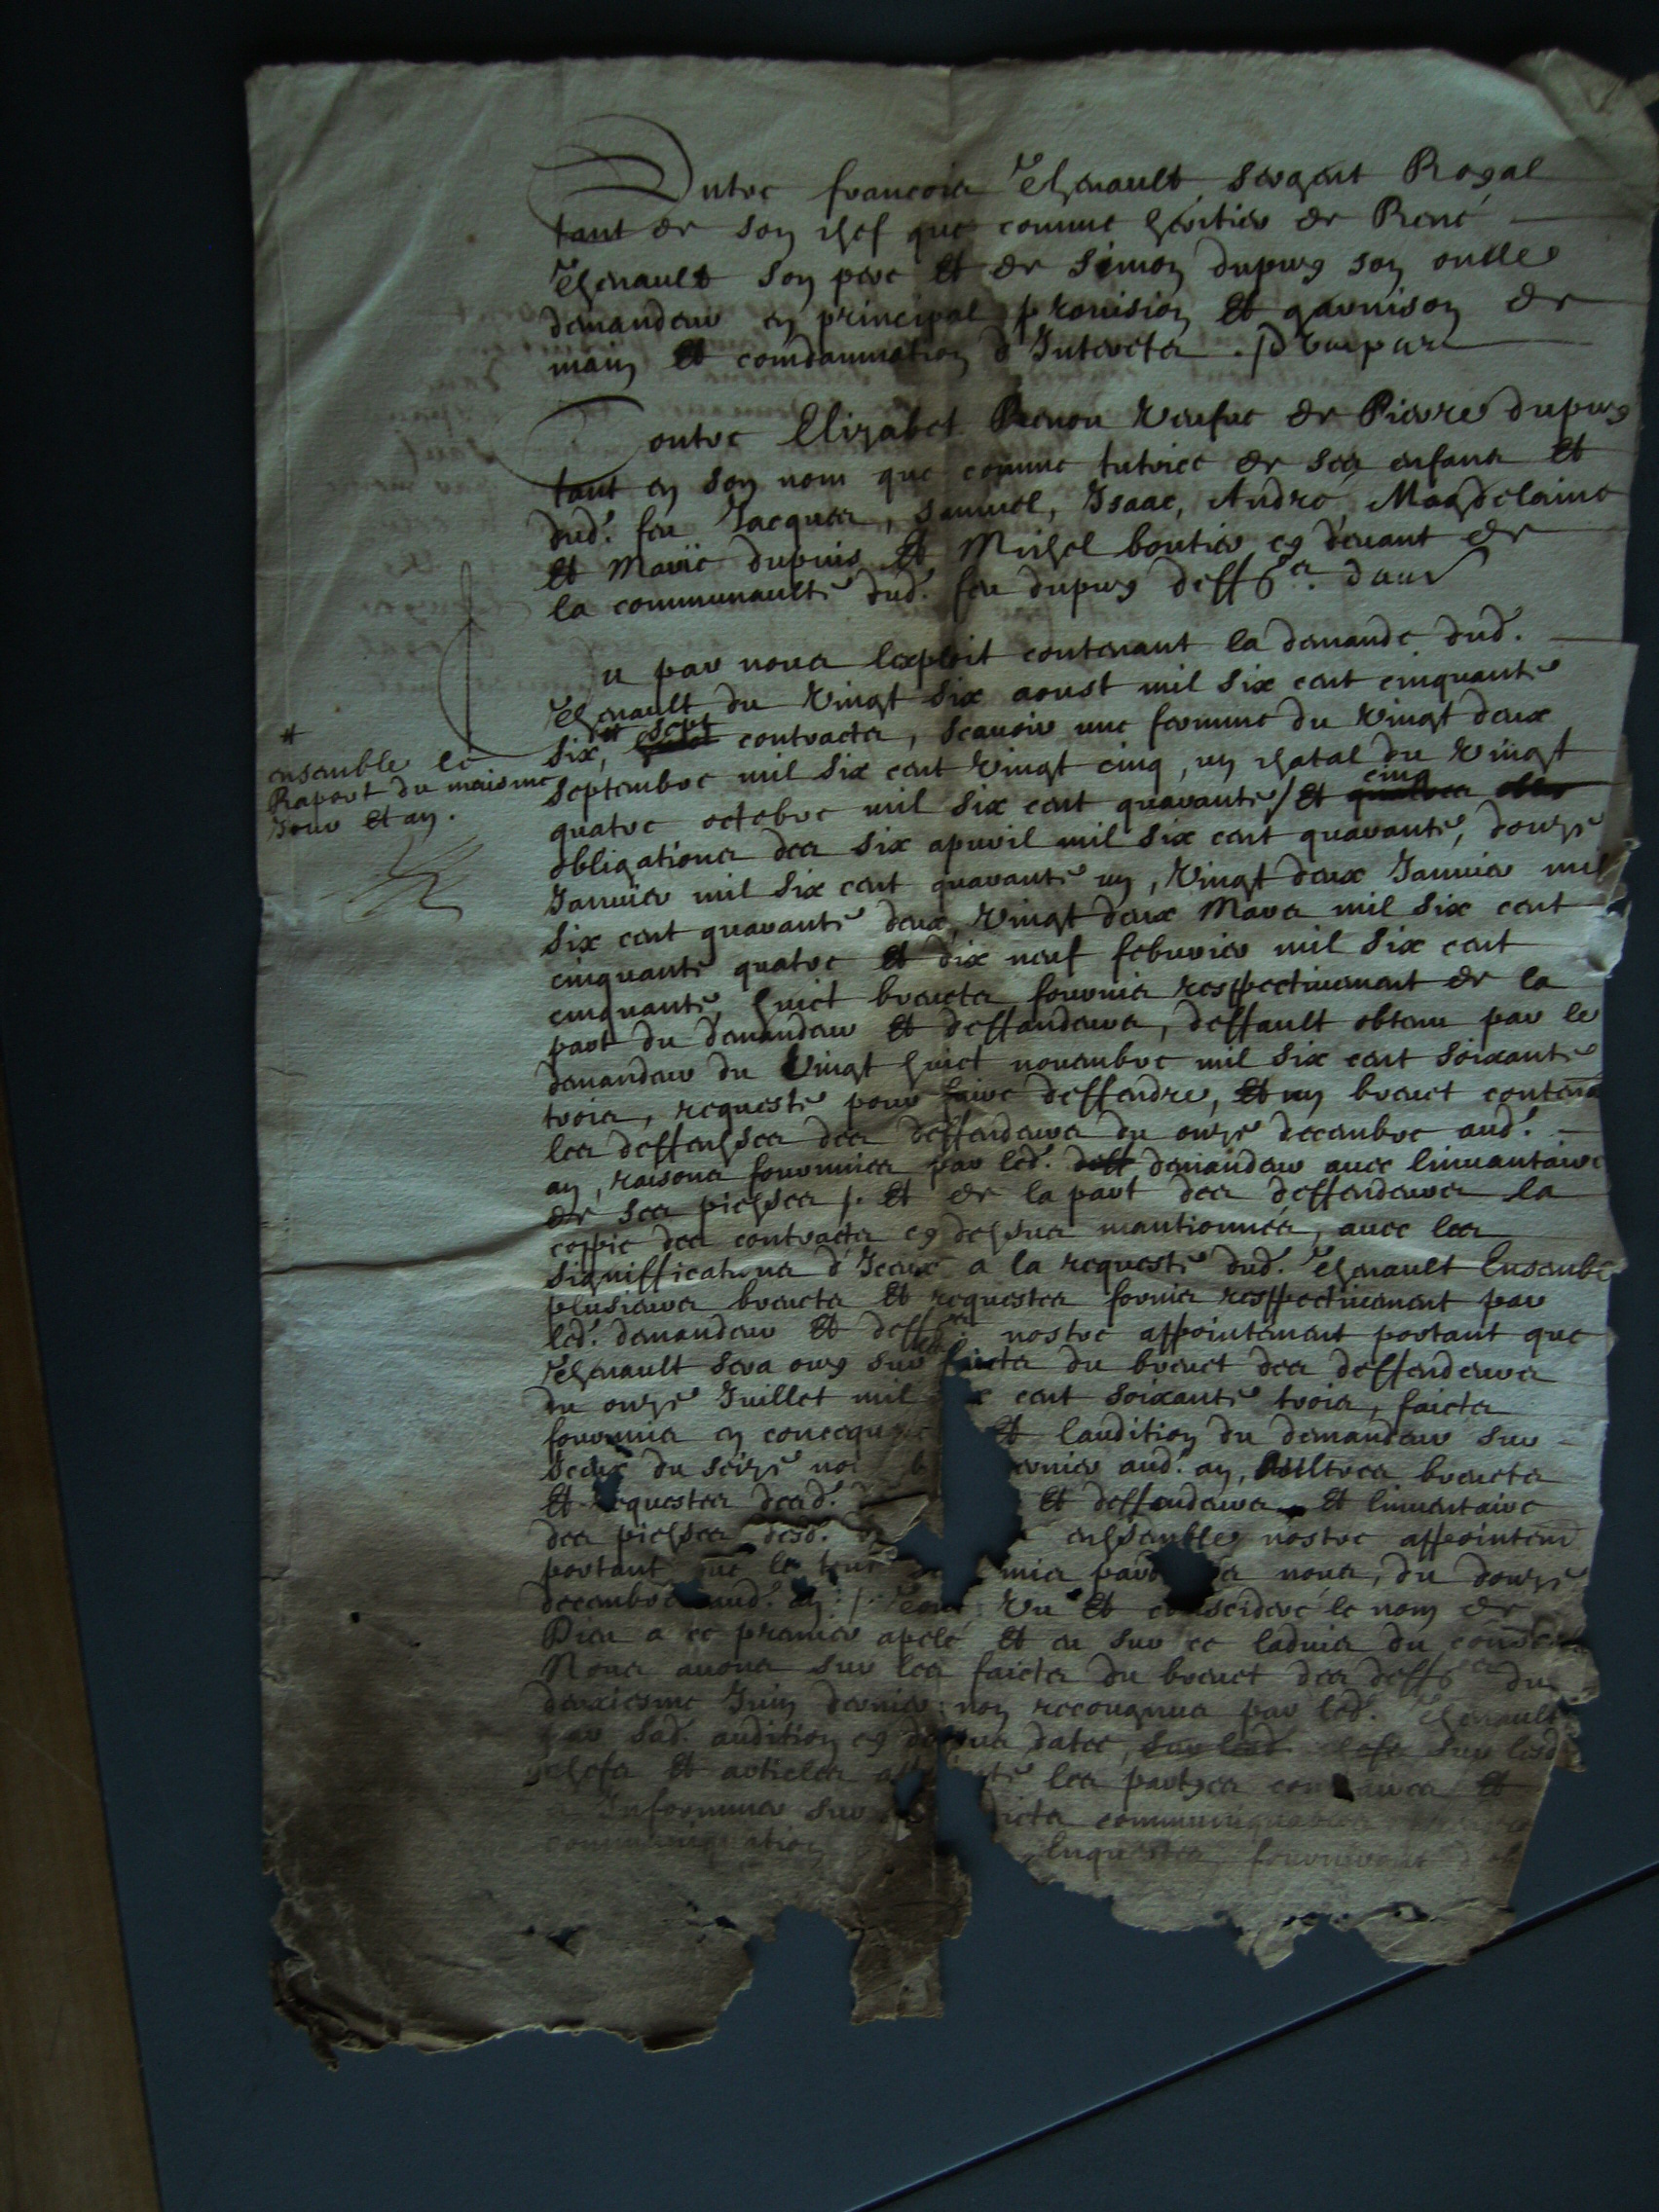 Entre francois Thenault sergent Royal
tant de son chef que comme heritier de René
Thenault son pere et de simon dupuy son oncle
demandeur en principal provision et garnison de
main et comdamnation d'Interets.
Contre Elizabet Renou veufue de Pierre dupuy
tant en son nom que comme tutrice de ses enfans et
dud. feu Jacques, samuel, Isaac, André, Magdelaine
et Marie dupuis et Michel boutier cy devant de
la communaulté dud. feu dupuy deff.rs
Veu par nous lexploit contenant la demande dud.
Thenault du vingt six aoust mil six cent cinquante
six, # sept contracts, scauoir une fermme du vingt deux
# ensemble le
Raport du maisme
Jour et an.
septembre mil six cent vingt cinq, un chatal du vingt
quatre octobre mil six cent quarante / et cinq
obligations des six apuril mil six cent quarante, douze
Januier mil six cent quarante un, vingt deux Januier mil
six cent quarante deux, vingt deux Mars mil six cent
cinquante quatre et dix neuf feburier mil six cent
cinquante huict breuets fournis respectiuement de la
part du demandeur et deffandeurs, deffault obtenu par le
demandeur du vingt huict nouembre mil six cent soixante
trois, requeste pour faire deffendre, et un breuet contena
les deffenses des deffendeurs du onze decembre aud.
an, raisons fournnies par led. demandeur auec linuantaire
de ses piesses /. et de la part des deffendeurs la
coppie des contracts cy dessus mantionnés, auec les
significations d'Iceux a la requeste dud. Thenault Ensemble
plusieurs breuets et requestes fornis respectiuement par
led. demandeur et deff.rs nostre appointement portant que
Thenault sera ouy sur les faicts du breuet des deffendeurs
du onze Juillet mil cent soixante trois, faicts
fournnis en et laudition du demandeur sur
Iceux du seize aud. an, Aultres breuets
et requestes desd. et deffendeurs et linuentaire
des piesses desd. ensemble nostre appointem
portant que le tout nous, du douze
decembre aud. an /. veu et conscideré le nom de
Dieu a ce premier apelé et eu sur ce laduis du
Nous auons sur les faicts du breuet des deff.rs du
deuxiesme Juin dernier non recougnus par led. Thenault
par sad. audition cy dessus datée, sur lesd
chefs et articles les partyes contraires et
a Informmer sur
communiquation Enquestes